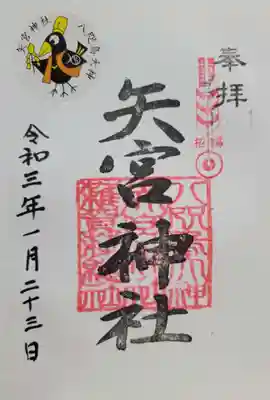 奉拝
矢宮神社
令和三年一月二十三日
矢宮神社
八咫烏大神